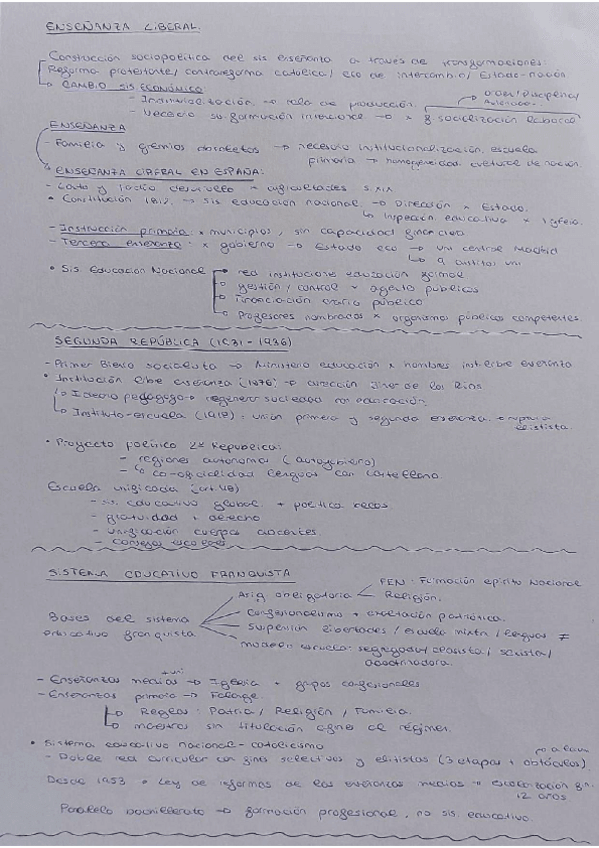 ENSEÑANZA LIBERAL.
Construcción sociopolítica del sis enseñanza a través de transformaciones:
Reforma protestante / contrarreforma católica / eco de intercambio / Estado-nación
CAMBIO SIS. ECONÓMICO
Orden / Disciplina /
- Industrialización → relo de producción.
- Necesia su formación intencional → x socialización laboral
ENSEÑANZA
- Familia y gremios obsoletos → necesario institucionalización escuela
primaria → homogeneidad cultural de nación.
ENSEÑANZA LIBERAL EN ESPAÑA:
- Lento y tardío desarrollo x dificultades S. XIX
• Constitución 1812 → sis educación nacional → Dirección x Estado.
↳ Inspección educativa x Iglesia.
- Instrucción primaria: x municipios, sin capacidad financiera
- Tercera enseranza: x gobierno → Estado eco → uni central Madrid
↳ distritos uni
• Sis. Educación Nacional → red instituciones educación formal
→ gestión / control x agentes públicos
→ financiación erario público
→ Profesores nombrados x organismos públicos competentes.
SEGUNDA REPÚBLICA (1931-1936)
- Primer Bienio socialista → Ministerio educación x hombres inst. libre enseñanza
• Institución libre enseñanza (1876) → dirección Giner de los Ríos
↳ Ideario pedagógico → regenerar sociedad con educación.
↳ Instituto-escuela (1918) = unión primera y segunda enseñanza.
elitista.
• Proyecto político 2ª República:
- regiones autónomas (autogobierno)
↳ co-oficialidad lenguas con castellano.
Escuela unificada (art. 48)
- sis. educativo global + política becas
- gratuidad + derecho
- unificación cuerpos docentes.
- consejos escolares
SISTEMA EDUCATIVO FRANQUISTA
Bases del sistema
educativo franquista
Asig obligatoria
FEN: Formación espíritu Nacional
Religión.
Confesionalismo + exaltación patriótica.
Supresión libertades / escuela mixta / lenguas ≠
modelo escuela: segregadora / clasista / sexista /
adoctrinadora.
+ uni
- Enseñanzas medias → Iglesia + grupos confesionales
- Enseñanzas primaria → Falange.
↳ Reglas: Patria / Religión / Familia.
↳ maestros sin titulación afines al régimen.
• Sistema educativo nacional-catolicismo
- Doble red curricular con fines selectivos y elitistas (3 etapas + obstáculos)
Desde 1953 → Ley de reformas de las enseñanzas medias → escolarización
12 años
Paralelo bachillerato → formación profesional, no sis. educativo.